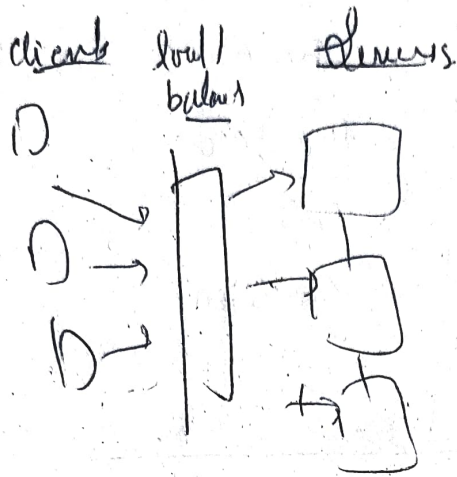 clients
load
balanc
Servers